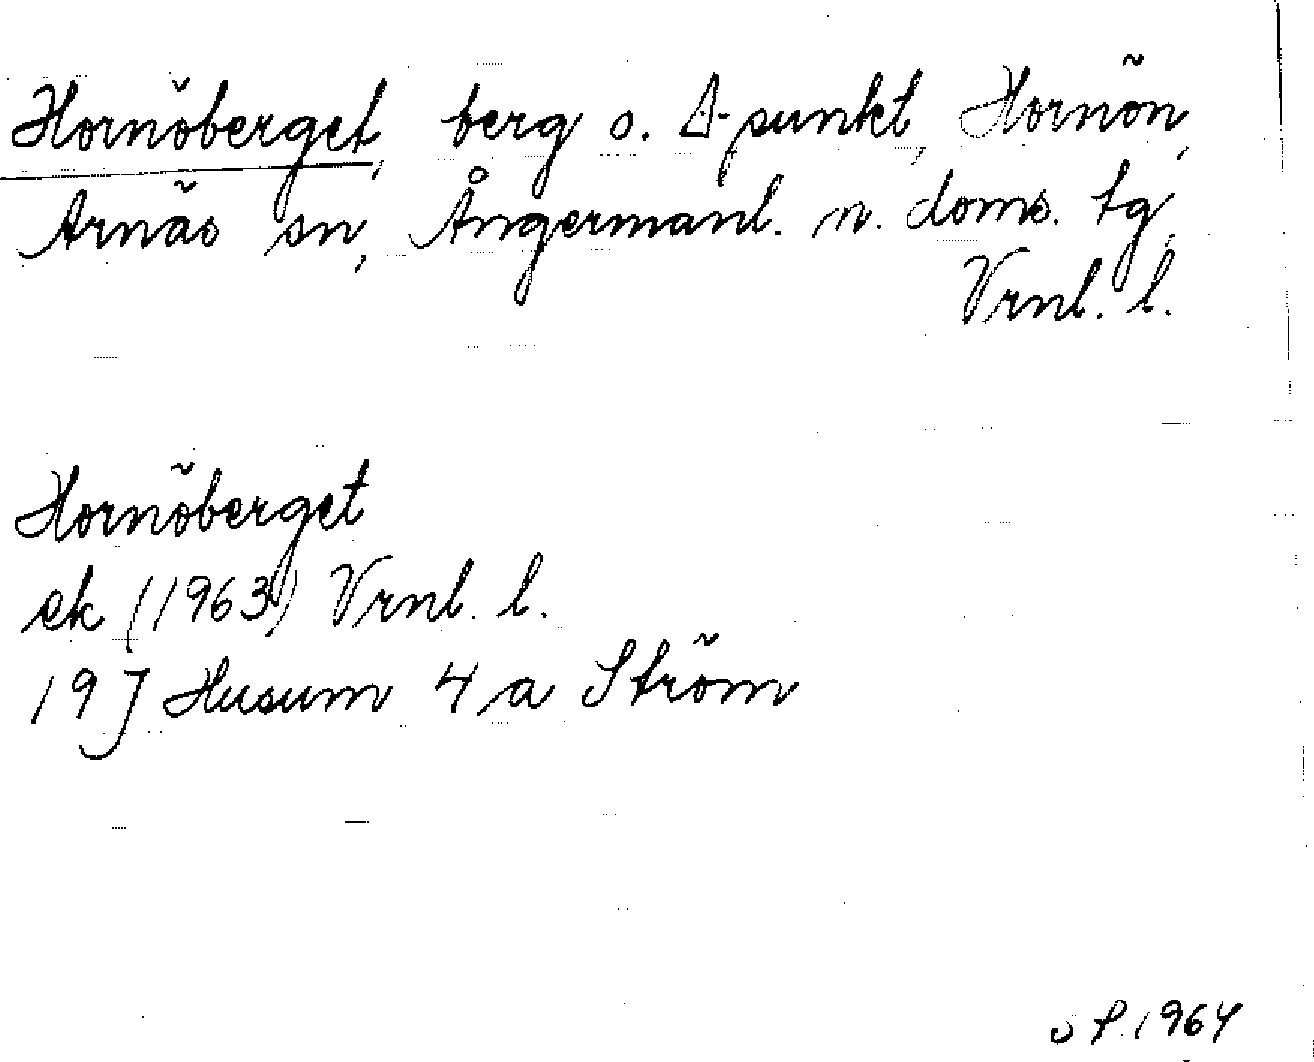 Hornöberget, berg o. Δ-punkt, Hornön,
Arnäs sn, Ångermanl. n. doms. tg,
Vrnl. l.
Hornöberget
ek (1963) Vrnl. l.
19J Husum 4 a Ström
1964